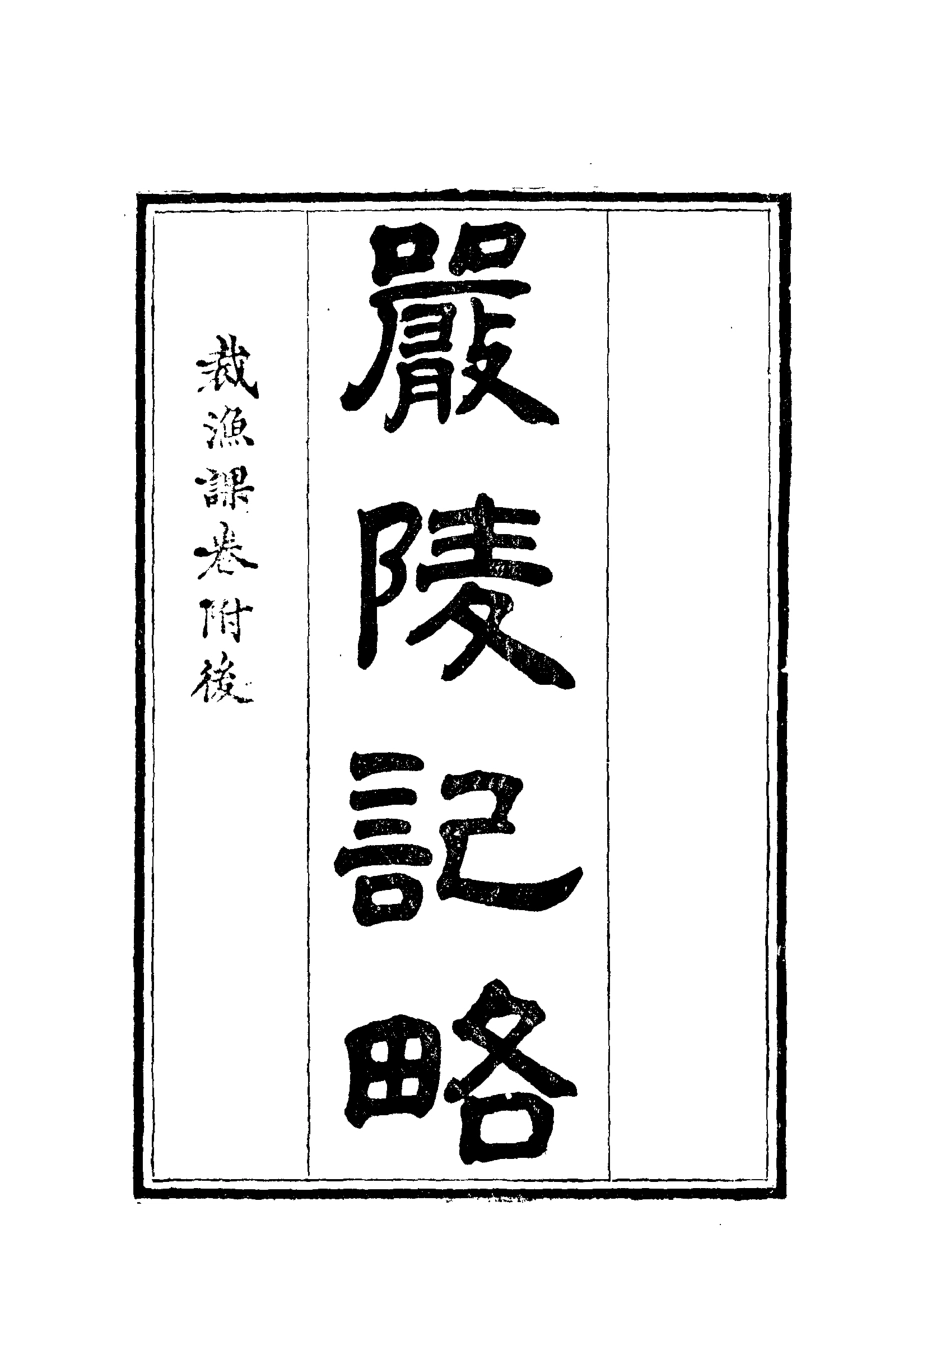 嚴陵記略
裁漁課卷附後